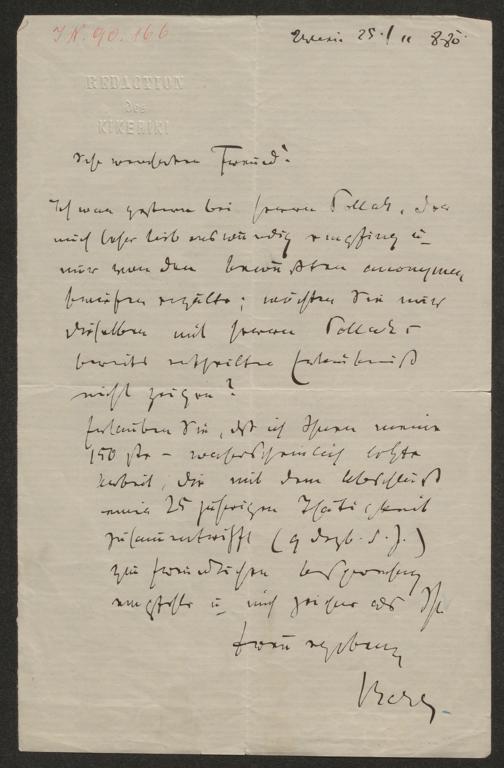 I.N. 90.166
Wien 25./11 880
REDACTION
des
KIKERIKI
Sehr verehrter Freund!
Ich war gestern bei Herrn Pollak, der
mich sehr liebenswürdig empfing u
mir von den bewußten anonymen
Briefen erzälte; möchten Sie mir
dieselben mit Herrn Pollaks
bereits ertheilter Erlaubniß
nicht zeigen?
Erlauben Sie, dß ich Ihnen meine
150ste - wahrscheinlich letzte
Arbeit, die mit dem Abschluß
25 jährigen Thätigkeit
zusammentrifft (9 Dezb. d. J.)
zur freundlichen Besprechung
empfehle u mich zeichne als Ihr
treu ergebener
Berg